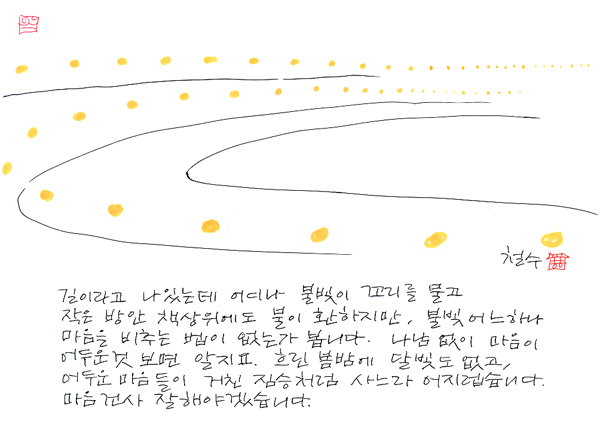 철수
길이라고 나있는데 어디나 불빛이 꼬리를 물고
작은 방안 책상위에도 불이 환하지만, 불빛 어느하나
마음을 비추는 법이 없는가 봅니다. 나남없이 마음이
어두운것 보면 알지요. 흐린 봄밤에 달빛도 없고,
어두운 마음들이 거친 짐승처럼 사느라 어지럽습니다.
마음건사 잘해야겠습니다.